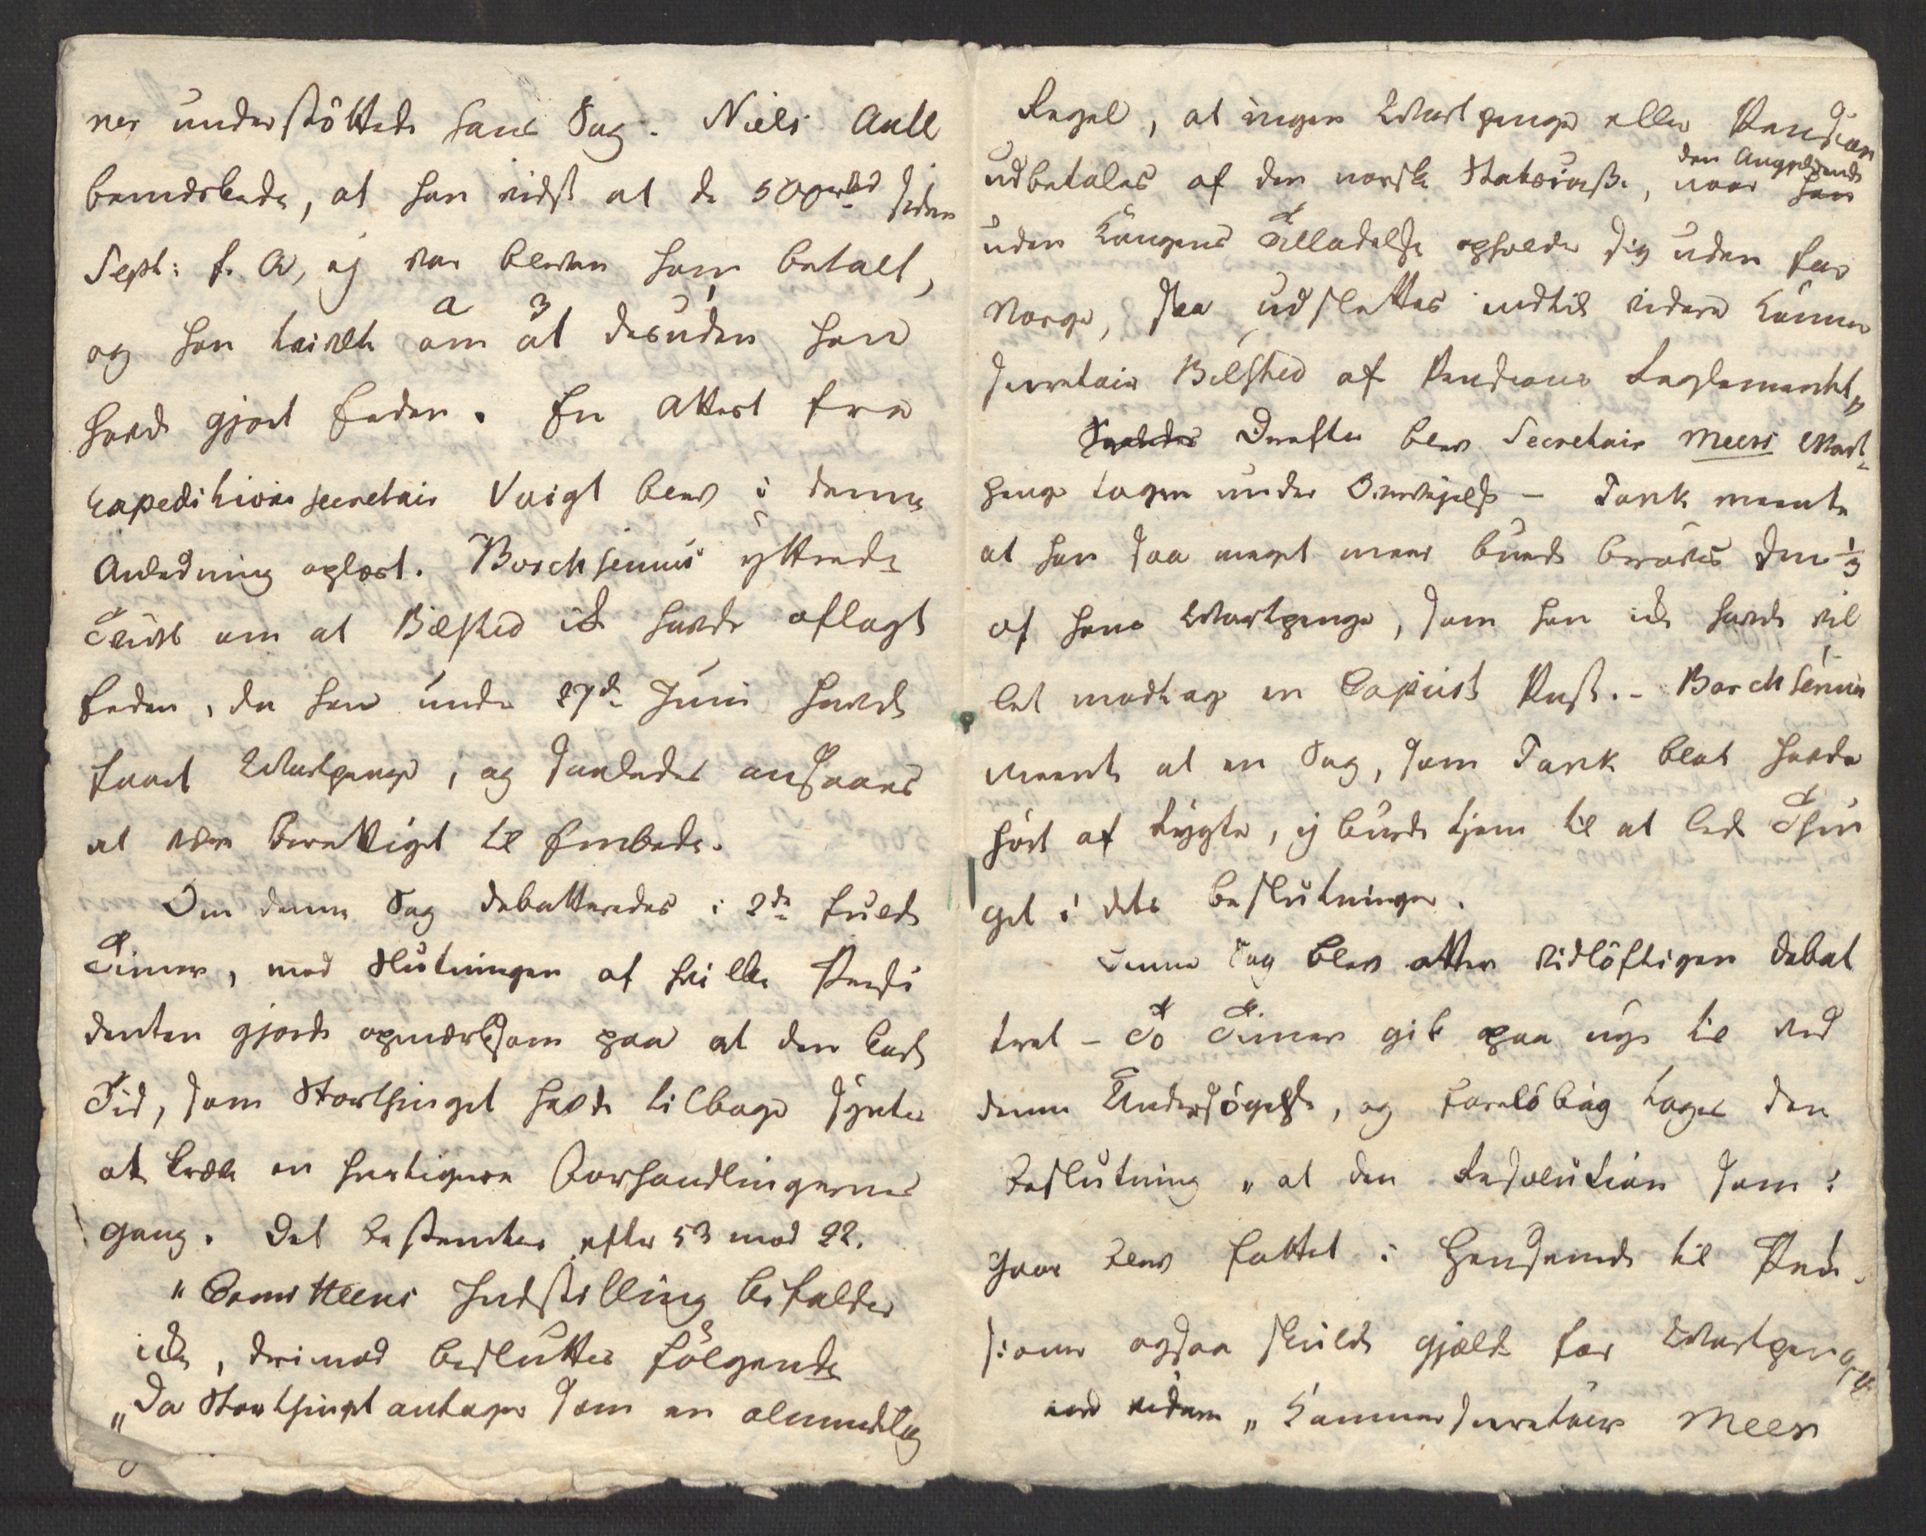 ner understöttede hans Sag. Niels Aall
bemærkede, at han vidste at de 500 rbd siden
Sept: f. A, ej var bleven ham betalt,
og han tvivlte om at desuden han
havde gjort Eeden. En Attest fra
Expeditionssecretair Voigt blev i denne
Anledning oplæst. Borchsenius yttrede
Tvivl om at Bilsted ikke havde aflagt
Eeden, da han under 27de Juni havde
faaet Wartpenge, og saaledes ansaaes
at være berettiget til Embede.
Om denne Sag debatteredes i 2de fulde
Timer, med Slutningen af hvilke Præsi
denten gjorde opmærksom paa at den korte
Tid, som Storthinget havde tilbage syntes
at kræve en hurtigere Forhandlingernes
Gang. Det bestemtes efter 53 mod 22.
"Comitteens Indstilling bifaldes
ikke, derimod besluttes følgende
"Da Storthinget antager som en almindelig
Regel, at ingen Wartpenge eller Pension
udbetales af den norske Statscasse, naar den Angjeldende han
uden Kongens Tilladelse opholder sig uden for
Norge, saa udslettes indtil videre Kammer
secretair Bilsted af Pensions Reglementet"
Saaledes Derefter blev Secretair Meers Wart-
penge tagen under Overvejelse - Tank meente
at han saa meget meer burde berøves den 1/3
af hans Wartpenge, som han ikke havde vil
let modtage en Copiist Post. - Borchsenius
meente at en Sag, som Tank blot havde
hört af Rygte, ej burde tjene til at lede Thin
get i dets Beslutninger.
Denne Sag blev atter vidlöftigen debat
teret - To Timer gik paa nye til ved
denne Undersögelse, og foreløbig toges den
Beslutning "at den Resolution som i
Gaar blev fattet i Henseende til Pen-
sioner ogsaa skulde gjælde for Wartpenge
videre "Kammersecretair Meer